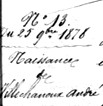 N° 13.
Du 23 9bre 1878
Naissance
de
Villechanoux André